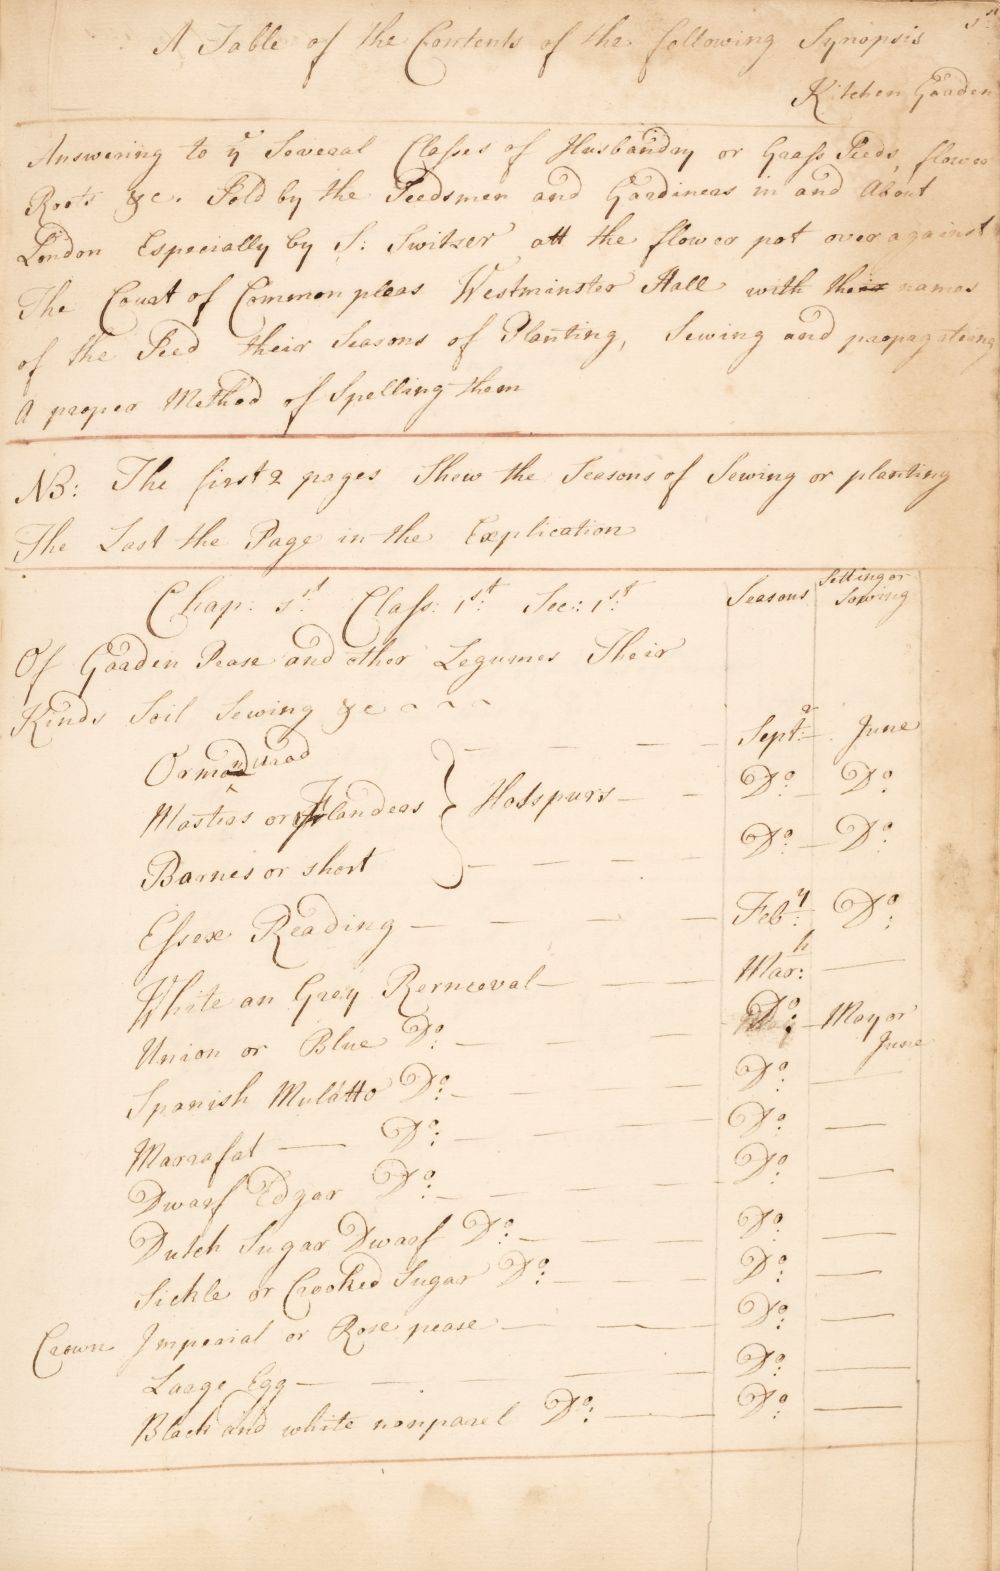 1st
A Table of the Contents of the following Synopsis
Kitchen Garden
Answering to ye Several Classes of Husbandry or Grass Seeds, flower
Roots &c. Sold by the Seedsmen and Gardiners in and About
London Especially by S: Switzer att the flower pot over against
The Court of Common pleas Westminster Hall with their names
of the Seed their Seasons of Planting, Sewing and propagateing
A proper Method of Spelling them
NB: The first 2 pages Shew the Seasons of Sewing or planting
The Last the Page in the Explication
Chap: 1st: Class: 1st: Sec: 1st: Seasons Setting or Sowing
Of Garden Pease and other Legumes Their
Kinds Soil Sewing &c
Ormond Sept: June
Masters or Flanders Hotspurs Do: Do:
Barnes or short Do: Do:
Essex Reading Feby: Do:
White an Grey Rernceval Marh:
Union or Blue Do: Do: May or June
Spanish Mulatto Do: Do:
Marrafat Do: Do:
Dwarf Edgar Do: Do:
Dutch Sugar Dwarf Do: Do:
Sickle or Crooked Sugar Do: Do:
Crown Imperial or Rose pease Do:
Large Egg Do:
Black and white nonparel Do: Do: